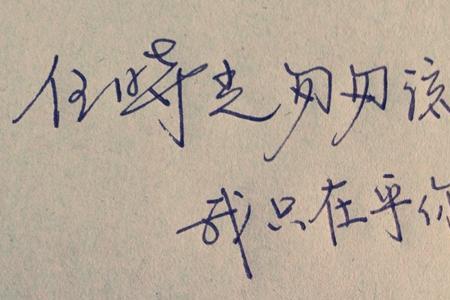 任時光匆匆该
我只在乎你